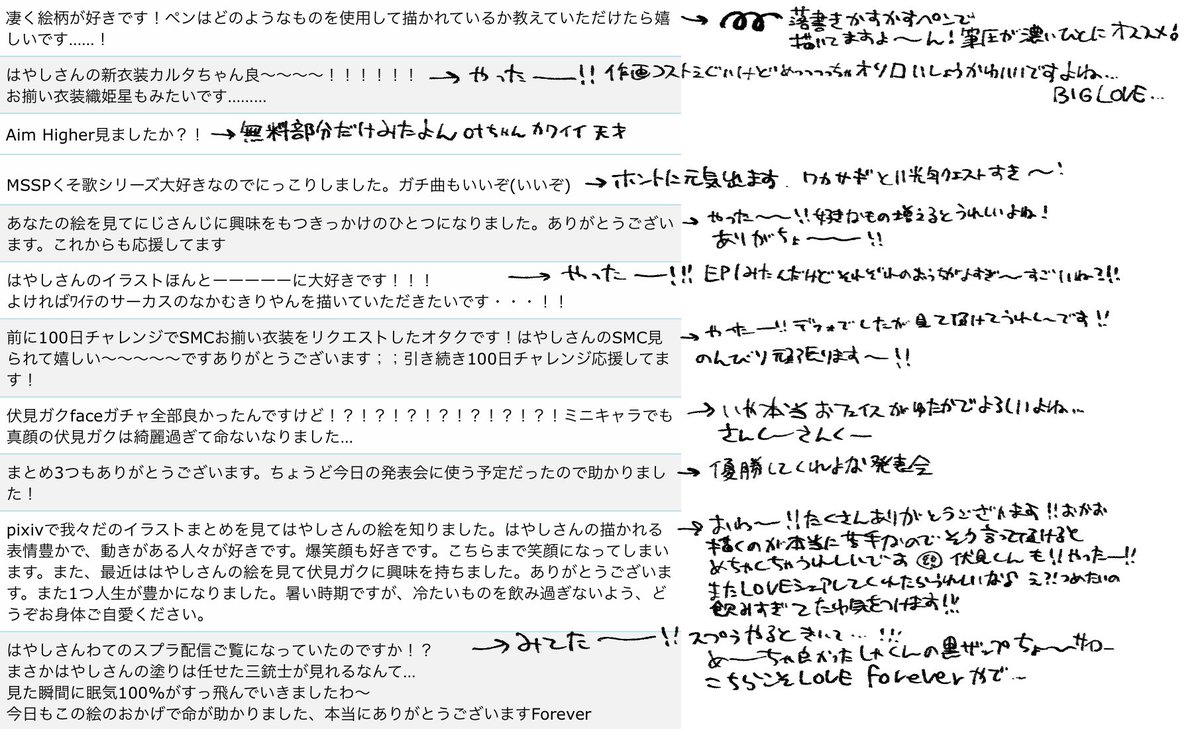 凄く絵柄が好きです！ペンはどのようなものを使用して描かれているか教えていただけたら嬉
しいです……！
→ 落書きかすかすペンで
描いてますよ〜ん！筆圧が濃いひとにオススメ！
はやしさんの新衣装カルタちゃん良〜〜〜〜！！！！！！
お揃い衣装織姫星もみたいです………
→ やったー!! 作画コストえぐいけどめっっっっちゃオソロいしょうかわいいですよね…
BIG LOVE…
Aim Higher見ましたか？！
→ 無料部分だけみたよん otちゃんカワイイ天才
MSSPくそ歌シリーズ大好きなのでにっこりしました。ガチ曲もいいぞ(いいぞ)
→ ホントに元気出ます. ワカサギと クエストすき〜！
あなたの絵を見てにじさんじに興味をもつきっかけのひとつになりました。ありがとうござい
ます。これからも応援してます
→ やった〜〜!!好きなもの増えるとうれしいよね！
ありがちょ〜〜!!
はやしさんのイラストほんとーーーーーに大好きです！！！
よければﾜｲﾃのサーカスのなかむきりやんを描いていただきたいです・・・！！
→ やったー!!! EP1みたんだけどそれぞれのおうちがよすぎ〜すごいね?!!
前に100日チャレンジでSMCお揃い衣装をリクエストしたオタクです！はやしさんのSMC見
られて嬉しい〜〜〜〜〜ですありがとうございます；；引き続き100日チャレンジ応援してま
す！
→ やったー!! デフォでしたが見て頂けてうれし〜です!!
のんびり頑張ります〜!!
伏見ガクfaceガチャ全部良かったんですけど！？！？！？！？！？！？！ミニキャラでも
真顔の伏見ガクは綺麗過ぎて命ないなりました…
→ いや本当おフェイスがゆたかでよろしいよね…
さんくーさんくー
まとめ3つもありがとうございます。ちょうど今日の発表会に使う予定だったので助かりまし
た！
→ 優勝してくれよな発表会
pixivで我々だのイラストまとめを見てはやしさんの絵を知りました。はやしさんの描かれる
表情豊かで、動きがある人々が好きです。爆笑顔も好きです。こちらまで笑顔になってしまい
ます。また、最近ははやしさんの絵を見て伏見ガクに興味を持ちました。ありがとうございま
す。また1つ人生が豊かになりました。暑い時期ですが、冷たいものを飲み過ぎないよう、ど
うぞお身体ご自愛ください。
→ おわ〜!!たくさんありがとうございます!!おかお
描くのが本当に苦手なのでそう言って頂けると
めちゃくちゃうれしいです 伏見くんも!!やったー!!
またLOVEシェアしてくれたらうれしいな♪ え?!つめたいの
飲みすぎてたわ気をつけます!!!
はやしさんわてのスプラ配信ご覧になっていたのですか！？
まさかはやしさんの塗りは任せた三銃士が見れるなんて…
見た瞬間に眠気100%がすっ飛んでいきましたわ〜
今日もこの絵のおかげで命が助かりました、本当にありがとうございますForever
→ みてたー!! スプラやるときいて…!!!
め〜〜ちゃ良かったしゃくんの黒ザップちょ〜
こちらこそLOVE foreverやで…